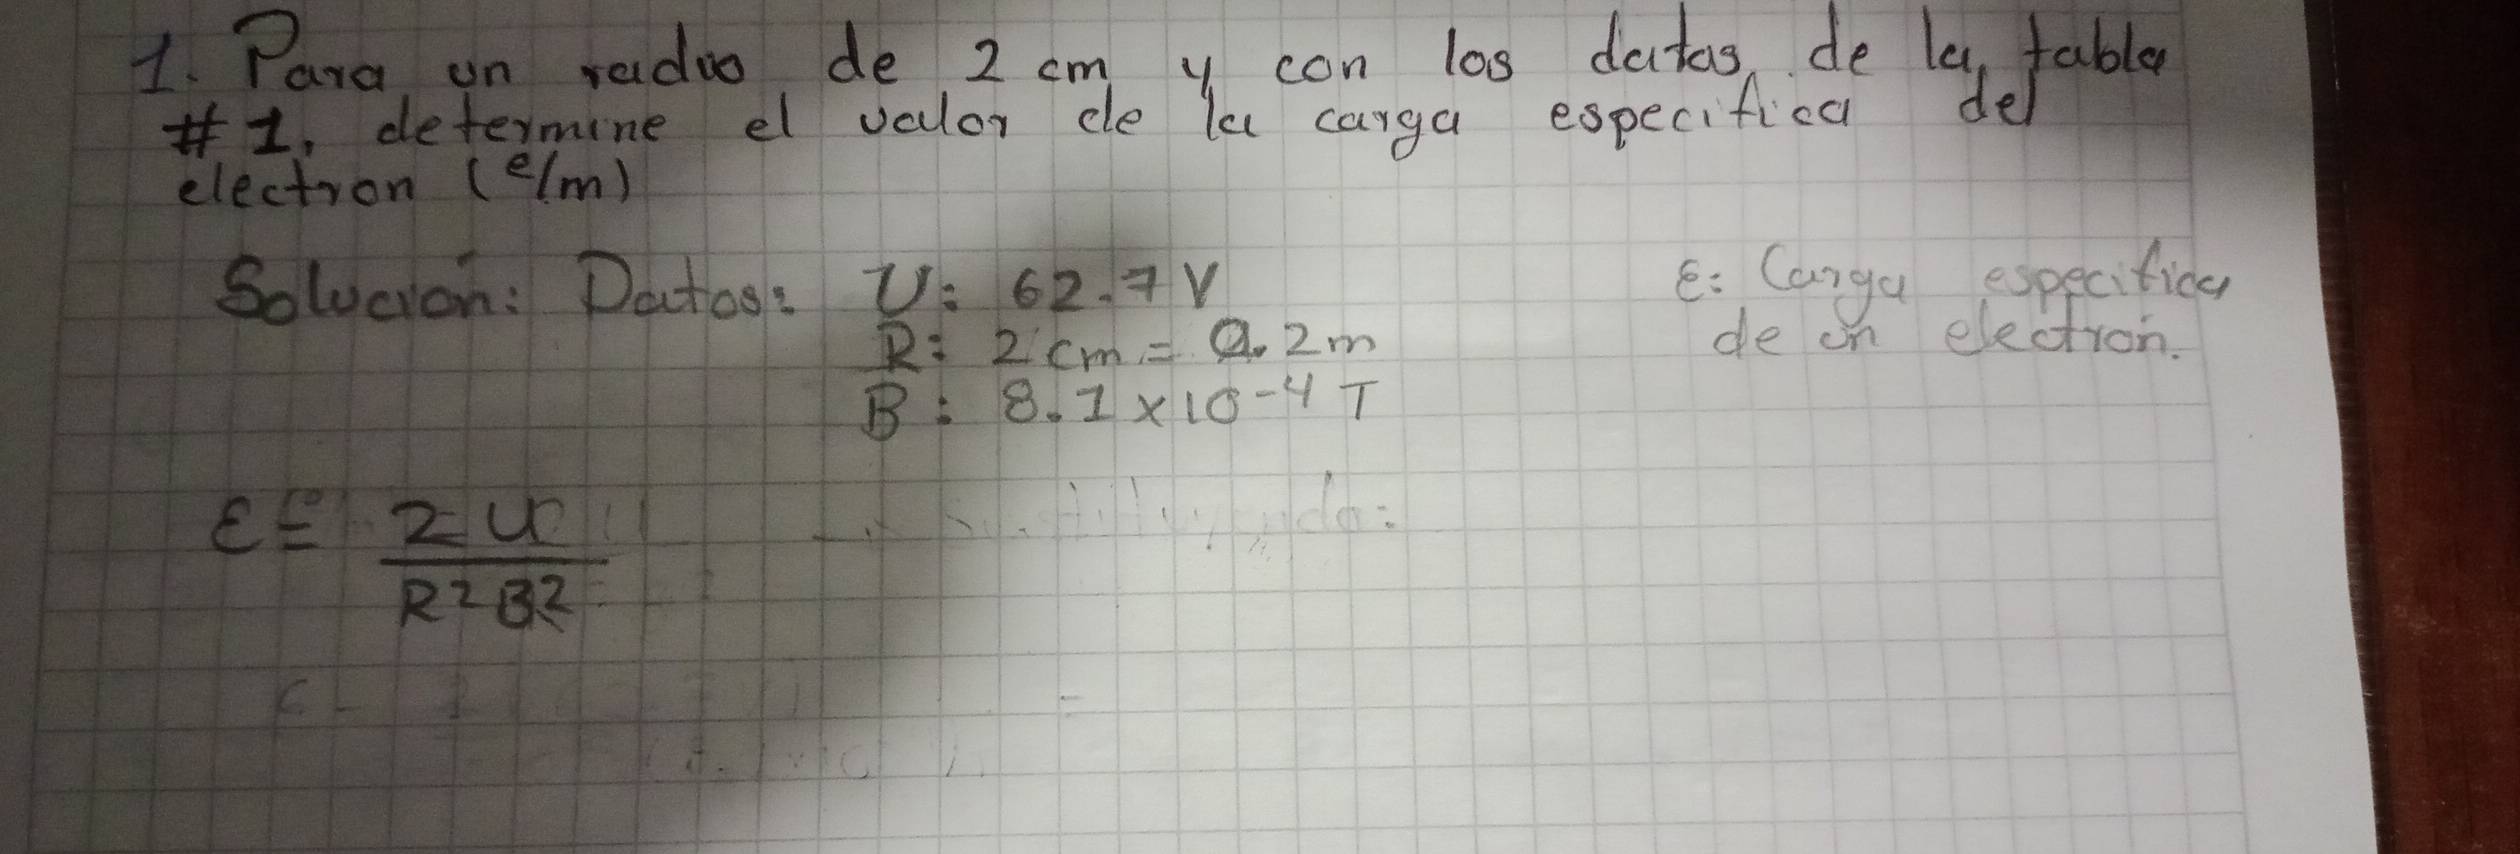 1. Para un radio de 2 cm y con los datos de la tabla
#1, determine el valor de la carga especifica del
electron (e/m)
Solución: Datos: U: 62.7 V
E: Carga especifica
R: 2 cm = 0.2m
de un electron.
B: 8.1 x 10-4 T
E = 2 U
R2 B2